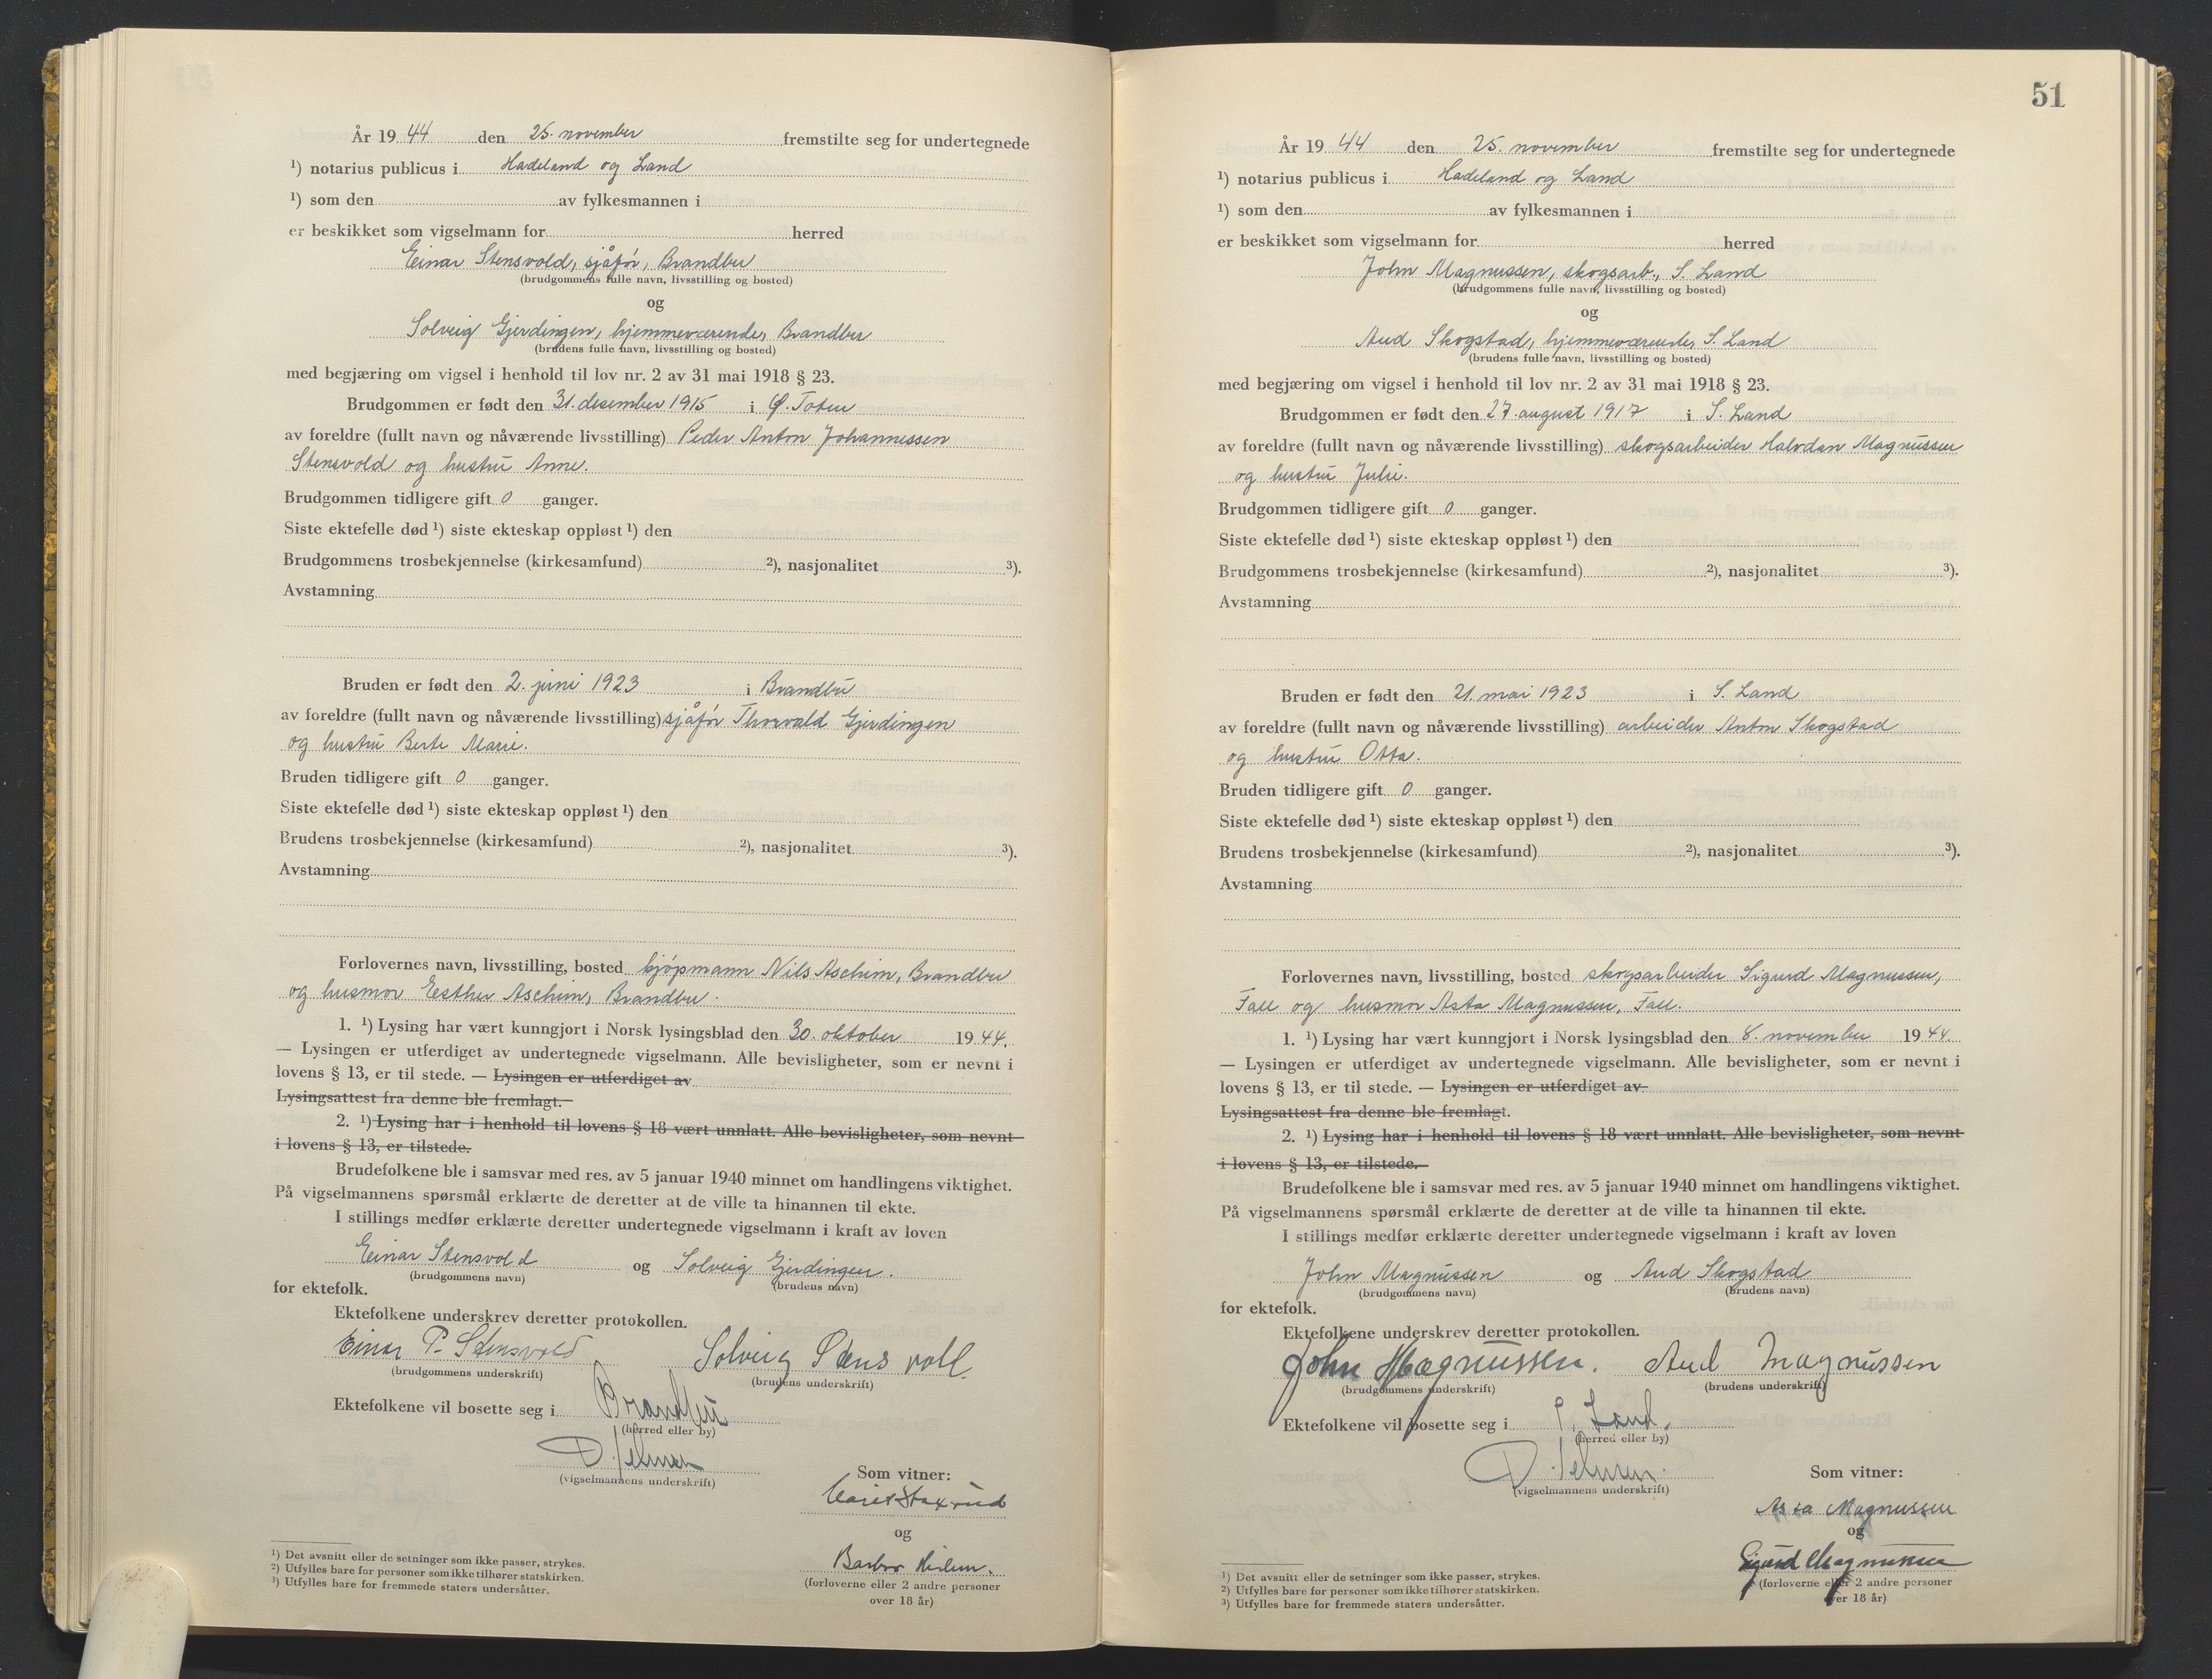 År 1944 den 25. november fremstilte seg for undertegnede
¹) notarius publicus i Hadeland og Land
¹) som den av fylkesmannen i
er beskikket som vigselmann for herred
Einar Stensvold, sjåfór, Brandbu
(brudgommens fulle navn, livsstilling og bosted)
og
Solveig Gjerdingen, hjemmeværende, Brandbu
(brudens fulle navn, livsstilling og bosted)
med begjæring om vigsel i henhold til lov nr. 2 av 31 mai 1918 § 23.
Brudgommen er født den 31. desember 1915 i Ø. Toten
av foreldre (fullt navn og nåværende livsstilling) Peder Anton Johannessen
Stensvold og hustru Anne.
Brudgommen tidligere gift 0 ganger.
Siste ektefelle død ¹) siste ekteskap oppløst ¹) den
Brudgommens trosbekjennelse (kirkesamfund) ²), nasjonalitet ³).
Avstamning
Bruden er født den 2. juni 1923 i Brandbu
av foreldre (fullt navn og nåværende livsstilling) sjåfór Thorvald Gjerdingen
og hustru Berte Marie.
Bruden tidligere gift 0 ganger.
Siste ektefelle død ¹) siste ekteskap oppløst ¹) den
Brudens trosbekjennelse (kirkesamfund) ²), nasjonalitet ³).
Avstamning
Forlovernes navn, livsstilling, bosted kjópmann Nils Aschim, Brandbu
og husmor Esther Aschim, Brandbu.
1. ¹) Lysing har vært kunngjort i Norsk lysingsblad den 30. oktober 1944.
— Lysingen er utferdiget av undertegnede vigselmann. Alle bevisligheter, som er nevnt i
lovens § 13, er til stede. — Lysingen er utferdiget av
Lysingsattest fra denne ble fremlagt.
2. ¹) Lysing har i henhold til lovens § 18 vært unnlatt. Alle bevisligheter, som nevnt
i lovens § 13, er tilstede.
Brudefolkene ble i samsvar med res. av 5 januar 1940 minnet om handlingens viktighet.
På vigselmannens spørsmål erklærte de deretter at de ville ta hinannen til ekte.
I stillings medfør erklærte deretter undertegnede vigselmann i kraft av loven
Einar Stensvold og Solveig Gjerdingen.
(brudgommens navn) (brudens navn)
for ektefolk.
Ektefolkene underskrev deretter protokollen.
Einar P. Stensvold Solveig Stensvold
(brudgommens underskrift) (brudens underskrift)
Ektefolkene vil bosette seg i Brandbu
(herred eller by)
(vigselmannens underskrift)
Som vitner:
og
Barbro
(forloverne eller 2 andre personer
over 18 år)
¹) Det avsnitt eller de setninger som ikke passer, strykes.
²) Utfylles bare for personer som ikke tilhører statskirken.
³) Utfylles bare for fremmede staters undersåtter.
51
År 1944 den 25. november fremstilte seg for undertegnede
¹) notarius publicus i Hadeland og Land
¹) som den av fylkesmannen i
er beskikket som vigselmann for herred
John Magnussen, skogsarb., S. Land
(brudgommens fulle navn, livsstilling og bosted)
og
Aud Skogstad, hjemmeværende, S. Land
(brudens fulle navn, livsstilling og bosted)
med begjæring om vigsel i henhold til lov nr. 2 av 31 mai 1918 § 23.
Brudgommen er født den 27. august 1917 i S. Land
av foreldre (fullt navn og nåværende livsstilling) skogsarbeider Halvdan Magnussen
og hustru Julie.
Brudgommen tidligere gift 0 ganger.
Siste ektefelle død ¹) siste ekteskap oppløst ¹) den
Brudgommens trosbekjennelse (kirkesamfund) ²), nasjonalitet ³).
Avstamning
Bruden er født den 21. mai 1923 i S. Land
av foreldre (fullt navn og nåværende livsstilling) arbeider Anton Skogstad
og hustru Otta.
Bruden tidligere gift 0 ganger.
Siste ektefelle død ¹) siste ekteskap oppløst ¹) den
Brudens trosbekjennelse (kirkesamfund) ²), nasjonalitet ³).
Avstamning
Forlovernes navn, livsstilling, bosted skogsarbeider Sigurd Magnussen,
Fall og husmor Asta Magnussen, Fall.
1. ¹) Lysing har vært kunngjort i Norsk lysingsblad den 8. november 1944.
— Lysingen er utferdiget av undertegnede vigselmann. Alle bevisligheter, som er nevnt i
lovens § 13, er til stede. — Lysingen er utferdiget av
Lysingsattest fra denne ble fremlagt.
2. ¹) Lysing har i henhold til lovens § 18 vært unnlatt. Alle bevisligheter, som nevnt
i lovens § 13, er tilstede.
Brudefolkene ble i samsvar med res. av 5 januar 1940 minnet om handlingens viktighet.
På vigselmannens spørsmål erklærte de deretter at de ville ta hinannen til ekte.
I stillings medfør erklærte deretter undertegnede vigselmann i kraft av loven
John Magnussen og Aud Skogstad
(brudgommens navn) (brudens navn)
for ektefolk.
Ektefolkene underskrev deretter protokollen.
John Magnussen. Aud Magnussen
(brudgommens underskrift) (brudens underskrift)
Ektefolkene vil bosette seg i S. Land.
(herred eller by)
(vigselmannens underskrift)
Som vitner:
Asta Magnussen
og
Sigurd Magnussen
(forloverne eller 2 andre personer
over 18 år)
¹) Det avsnitt eller de setninger som ikke passer, strykes.
²) Utfylles bare for personer som ikke tilhører statskirken.
³) Utfylles bare for fremmede staters undersåtter.